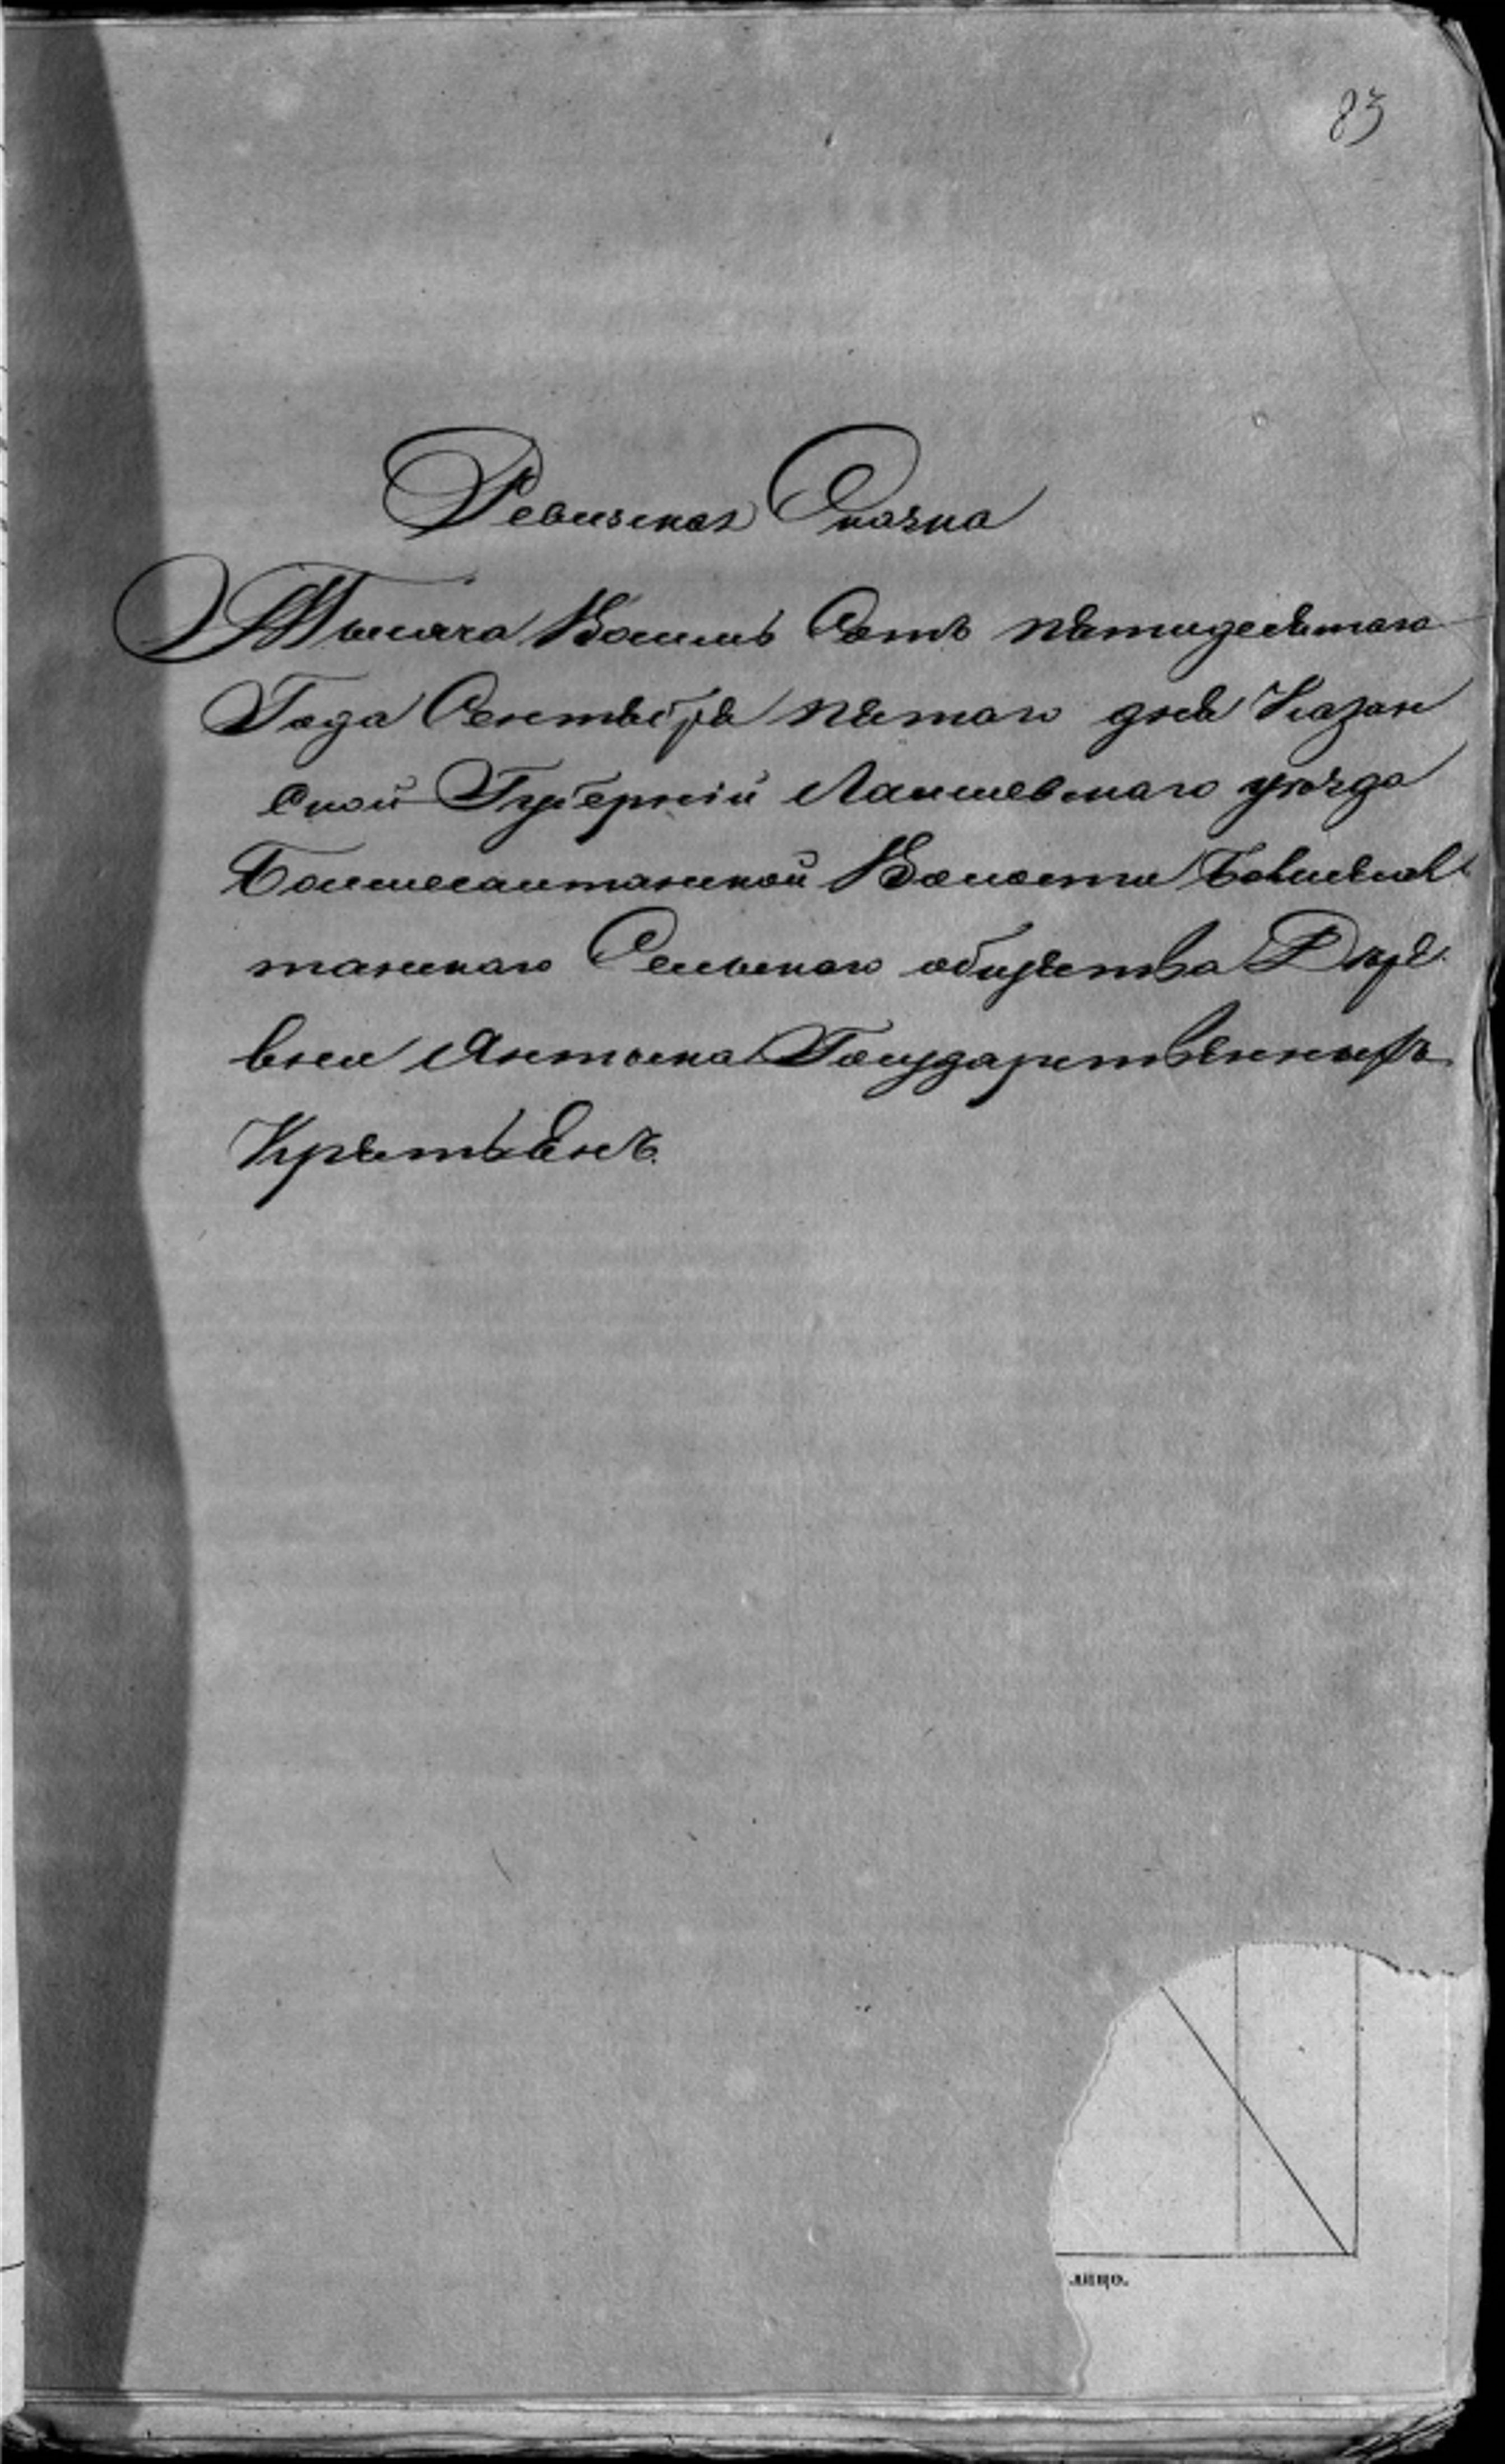 83
Ревизская Сказка
Тысяча Восемь Сотъ пятидесятаго
Года Сентября пятаго дня Казан
ской Губерніи Лаишевскаго уѣзда
Волости
Сельскаго общества Дере
вни Янтыка Государственныхъ
Крестьянъ.
лицо.